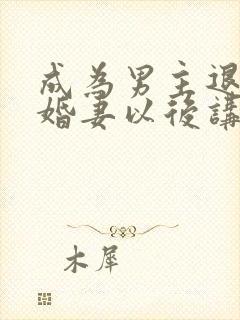 成為男主退
婚妻以後講
木犀